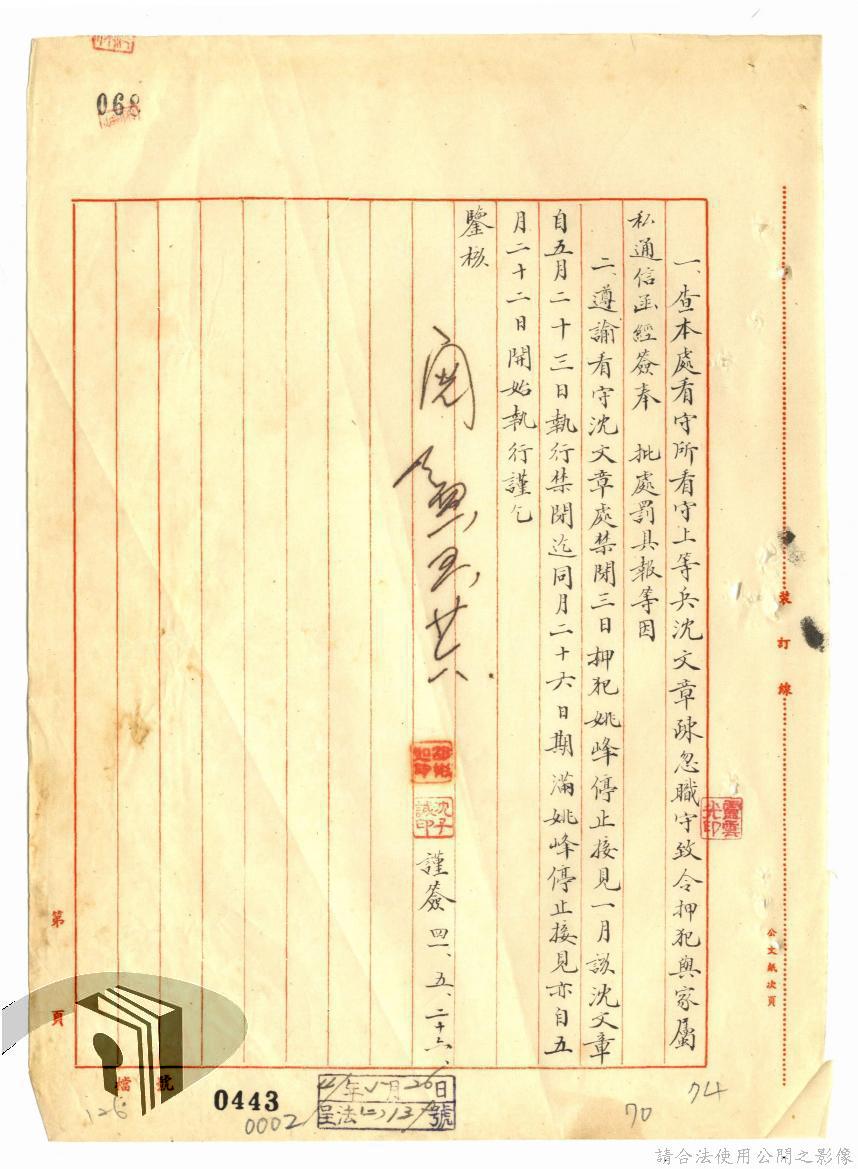 068
一、查本處看守所看守上等兵沈文章疎忽職守致令押犯與家屬
私通信函經簽奉　批處罰具報等因
二、遵諭看守沈文章處禁閉三日押犯姚峰停止接見一月該沈文章
自五月二十三日執行禁閉迄同月二十六日期滿姚峰停止接見亦自五
月二十二日開始執行謹乞
鑒核
閱
沈子誠印
謹簽 四一、五、二十六、
裝訂線
公文紙次頁
第　頁
檔　號
126
0443
0002
41年5月26日
呈法(二)13號
70
74
請合法使用公開之影像